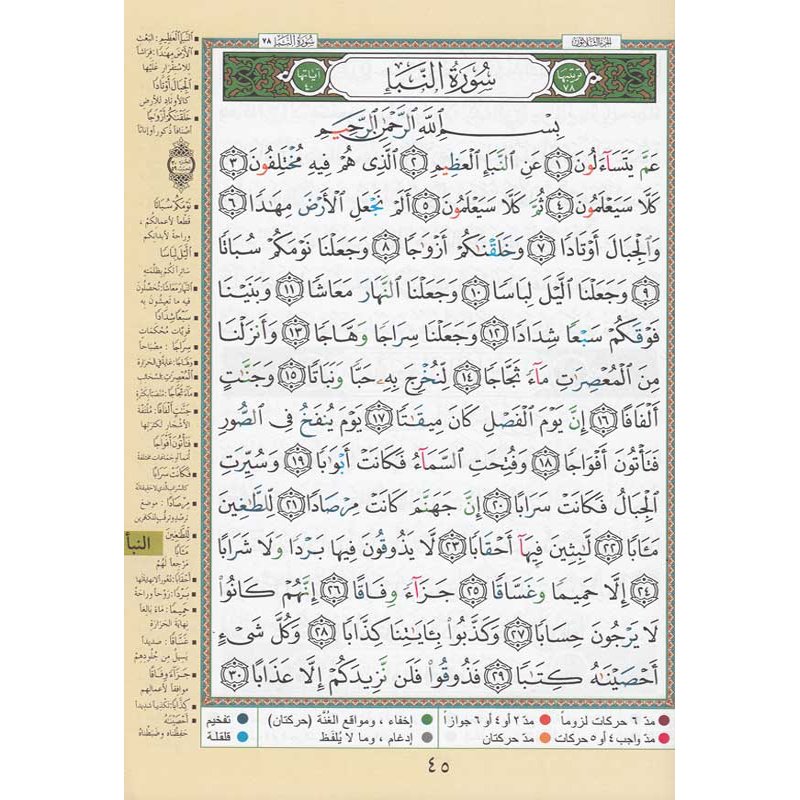 الجزء الثلاثون
سُورَةُ النَّبَإِ ٧٨
ترتيبها ٧٨
سُورَةُ النَّبَإِ
آياتها ٤٠
بِسْمِ اللَّهِ الرَّحْمَٰنِ الرَّحِيمِ
عَمَّ يَتَسَاءَلُونَ ١ عَنِ النَّبَإِ الْعَظِيمِ ٢ الَّذِي هُمْ فِيهِ مُخْتَلِفُونَ ٣
كَلَّا سَيَعْلَمُونَ ٤ ثُمَّ كَلَّا سَيَعْلَمُونَ ٥ أَلَمْ نَجْعَلِ الْأَرْضَ مِهَادًا ٦
وَالْجِبَالَ أَوْتَادًا ٧ وَخَلَقْنَاكُمْ أَزْوَاجًا ٨ وَجَعَلْنَا نَوْمَكُمْ سُبَاتًا
٩ وَجَعَلْنَا اللَّيْلَ لِبَاسًا ١٠ وَجَعَلْنَا النَّهَارَ مَعَاشًا ١١ وَبَنَيْنَا
فَوْقَكُمْ سَبْعًا شِدَادًا ١٢ وَجَعَلْنَا سِرَاجًا وَهَّاجًا ١٣ وَأَنزَلْنَا
مِنَ الْمُعْصِرَاتِ مَاءً ثَجَّاجًا ١٤ لِّنُخْرِجَ بِهِ حَبًّا وَنَبَاتًا ١٥ وَجَنَّاتٍ
أَلْفَافًا ١٦ إِنَّ يَوْمَ الْفَصْلِ كَانَ مِيقَاتًا ١٧ يَوْمَ يُنفَخُ فِي الصُّورِ
فَتَأْتُونَ أَفْوَاجًا ١٨ وَفُتِحَتِ السَّمَاءُ فَكَانَتْ أَبْوَابًا ١٩ وَسُيِّرَتِ
الْجِبَالُ فَكَانَتْ سَرَابًا ٢٠ إِنَّ جَهَنَّمَ كَانَتْ مِرْصَادًا ٢١ لِّلطَّاغِينَ
مَآبًا ٢٢ لَّابِثِينَ فِيهَا أَحْقَابًا ٢٣ لَّا يَذُوقُونَ فِيهَا بَرْدًا وَلَا شَرَابًا
٢٤ إِلَّا حَمِيمًا وَغَسَّاقًا ٢٥ جَزَاءً وِفَاقًا ٢٦ إِنَّهُمْ كَانُوا
لَا يَرْجُونَ حِسَابًا ٢٧ وَكَذَّبُوا بِآيَاتِنَا كِذَّابًا ٢٨ وَكُلَّ شَيْءٍ
أَحْصَيْنَاهُ كِتَابًا ٢٩ فَذُوقُوا فَلَن نَّزِيدَكُمْ إِلَّا عَذَابًا ٣٠
النَّبَإِ الْعَظِيمِ: البعث
الْأَرْضَ مِهَادًا: فراشاً
للاستقرار عليها
الْجِبَالَ أَوْتَادًا
كالأوتاد للأرض
خَلَقْنَاكُمْ أَزْوَاجًا
أصنافاً ذكوراً وإناثاً
نَوْمَكُمْ سُبَاتًا
قطعاً لأعمالكم،
وراحة لأبدانكم
اللَّيْلَ لِبَاسًا
ساتراً لكم بظلمته
النَّهَارَ مَعَاشًا: تحصّلون
فيه ما تعيشون به
سَبْعًا شِدَادًا
قويّات محكمات
سِرَاجًا: مصباحاً
وَهَّاجًا: غاية في الحرارة
الْمُعْصِرَاتِ: السحائب
مَاءً ثَجَّاجًا: منصبّاً بكثرة
جَنَّاتٍ أَلْفَافًا: ملتفّة
الأشجار لكثرتها
فَتَأْتُونَ أَفْوَاجًا
أمماً أو جماعات مختلفة
فَكَانَتْ سَرَابًا
كالسراب الذي لا حقيقة له
مِرْصَادًا: موضع
ترصّد وترقّب للكافرين
لِلطَّاغِينَ
مَآبًا
مرجعاً لهم
أَحْقَابًا: دهوراً لا نهاية لها
بَرْدًا: روحاً وراحة
حَمِيمًا: ماءً بالغاً
نهاية الحرارة
غَسَّاقًا: صديداً
يسيل من جلودهم
جَزَاءً وِفَاقًا
موافقاً لأعمالهم
كِذَّابًا: تكذيباً شديداً
أَحْصَيْنَاهُ
حفظناه وضبطناه
النبأ
مدّ ٦ حركات لزوماً
مدّ ٢ أو ٤ أو ٦ جوازاً
إخفاء، ومواقع الغُنَّة (حركتان)
تفخيم
مدّ واجب ٤ أو ٥ حركات
مدّ حركتان
إدغام، وما لا يُلفَظ
قلقلة
٤٥